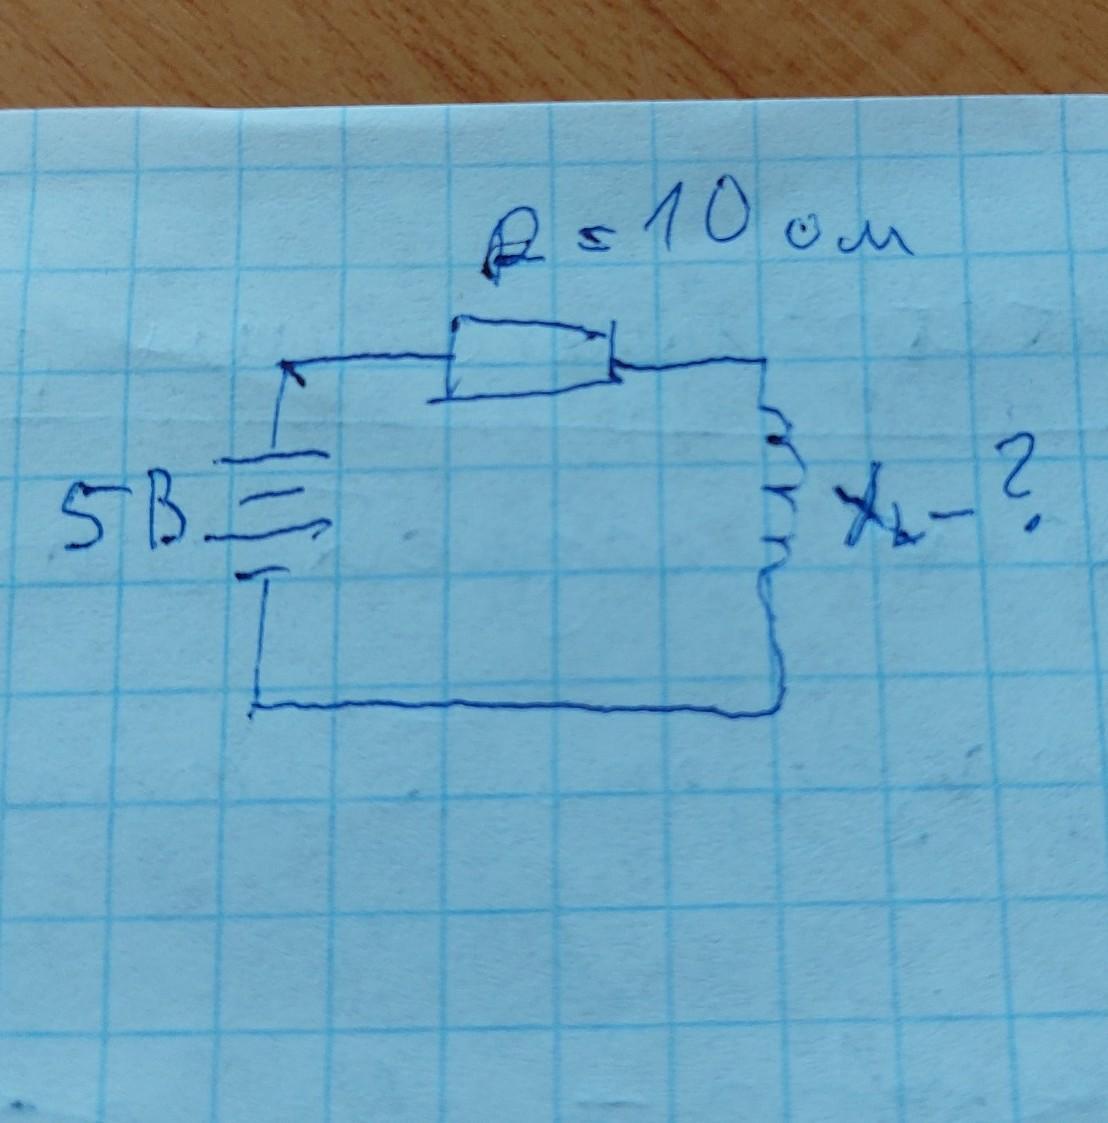 R = 10 ом
5 В
X_L - ?